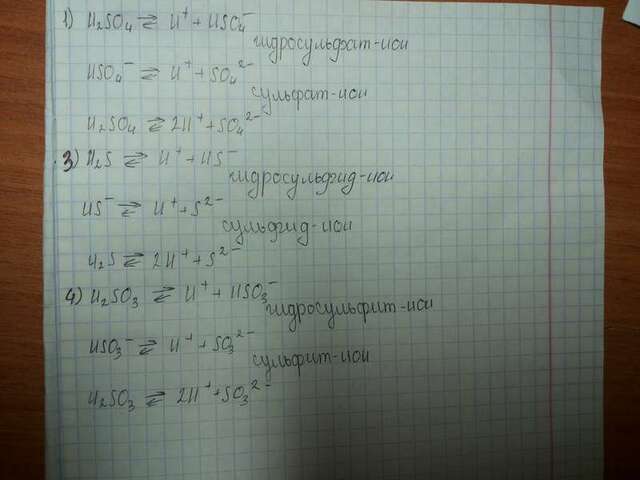 1) H₂SO₄ ⇄ H⁺ + HSO₄⁻
гидросульфат-ион
HSO₄⁻ ⇄ H⁺ + SO₄²⁻
сульфат-ион
H₂SO₄ ⇄ 2H⁺ + SO₄²⁻
3) H₂S ⇄ H⁺ + HS⁻
гидросульфид-ион
HS⁻ ⇄ H⁺ + S²⁻
сульфид-ион
H₂S ⇄ 2H⁺ + S²⁻
4) H₂SO₃ ⇄ H⁺ + HSO₃⁻
гидросульфит-ион
HSO₃⁻ ⇄ H⁺ + SO₃²⁻
сульфит-ион
H₂SO₃ ⇄ 2H⁺ + SO₃²⁻